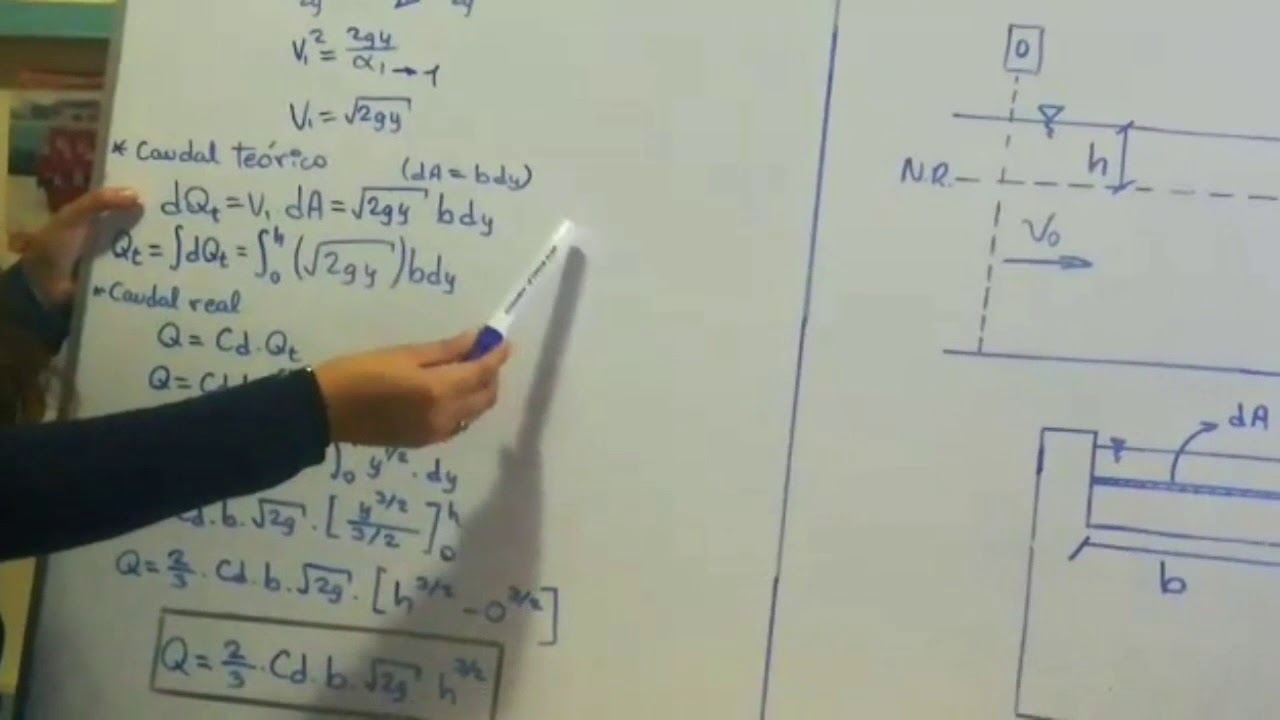 V₁² = 2gy/α₁→1
V₁ = √2gy
* Caudal teórico (dA = bdy)
dQt = V₁ dA = √2gy bdy
Qt = ∫dQt = ∫₀ʰ (√2gy) bdy
* Caudal real
Q = Cd. Qt
Q = Cd
∫₀ y^1/2 . dy
Cd. b. √2g . [y^3/2 / 3/2]₀ʰ
Q = 2/3 . Cd. b. √2g . [h^3/2 - 0^3/2]
Q = 2/3 . Cd. b. √2g h^3/2
0
h
N.R.
V₀
dA
b